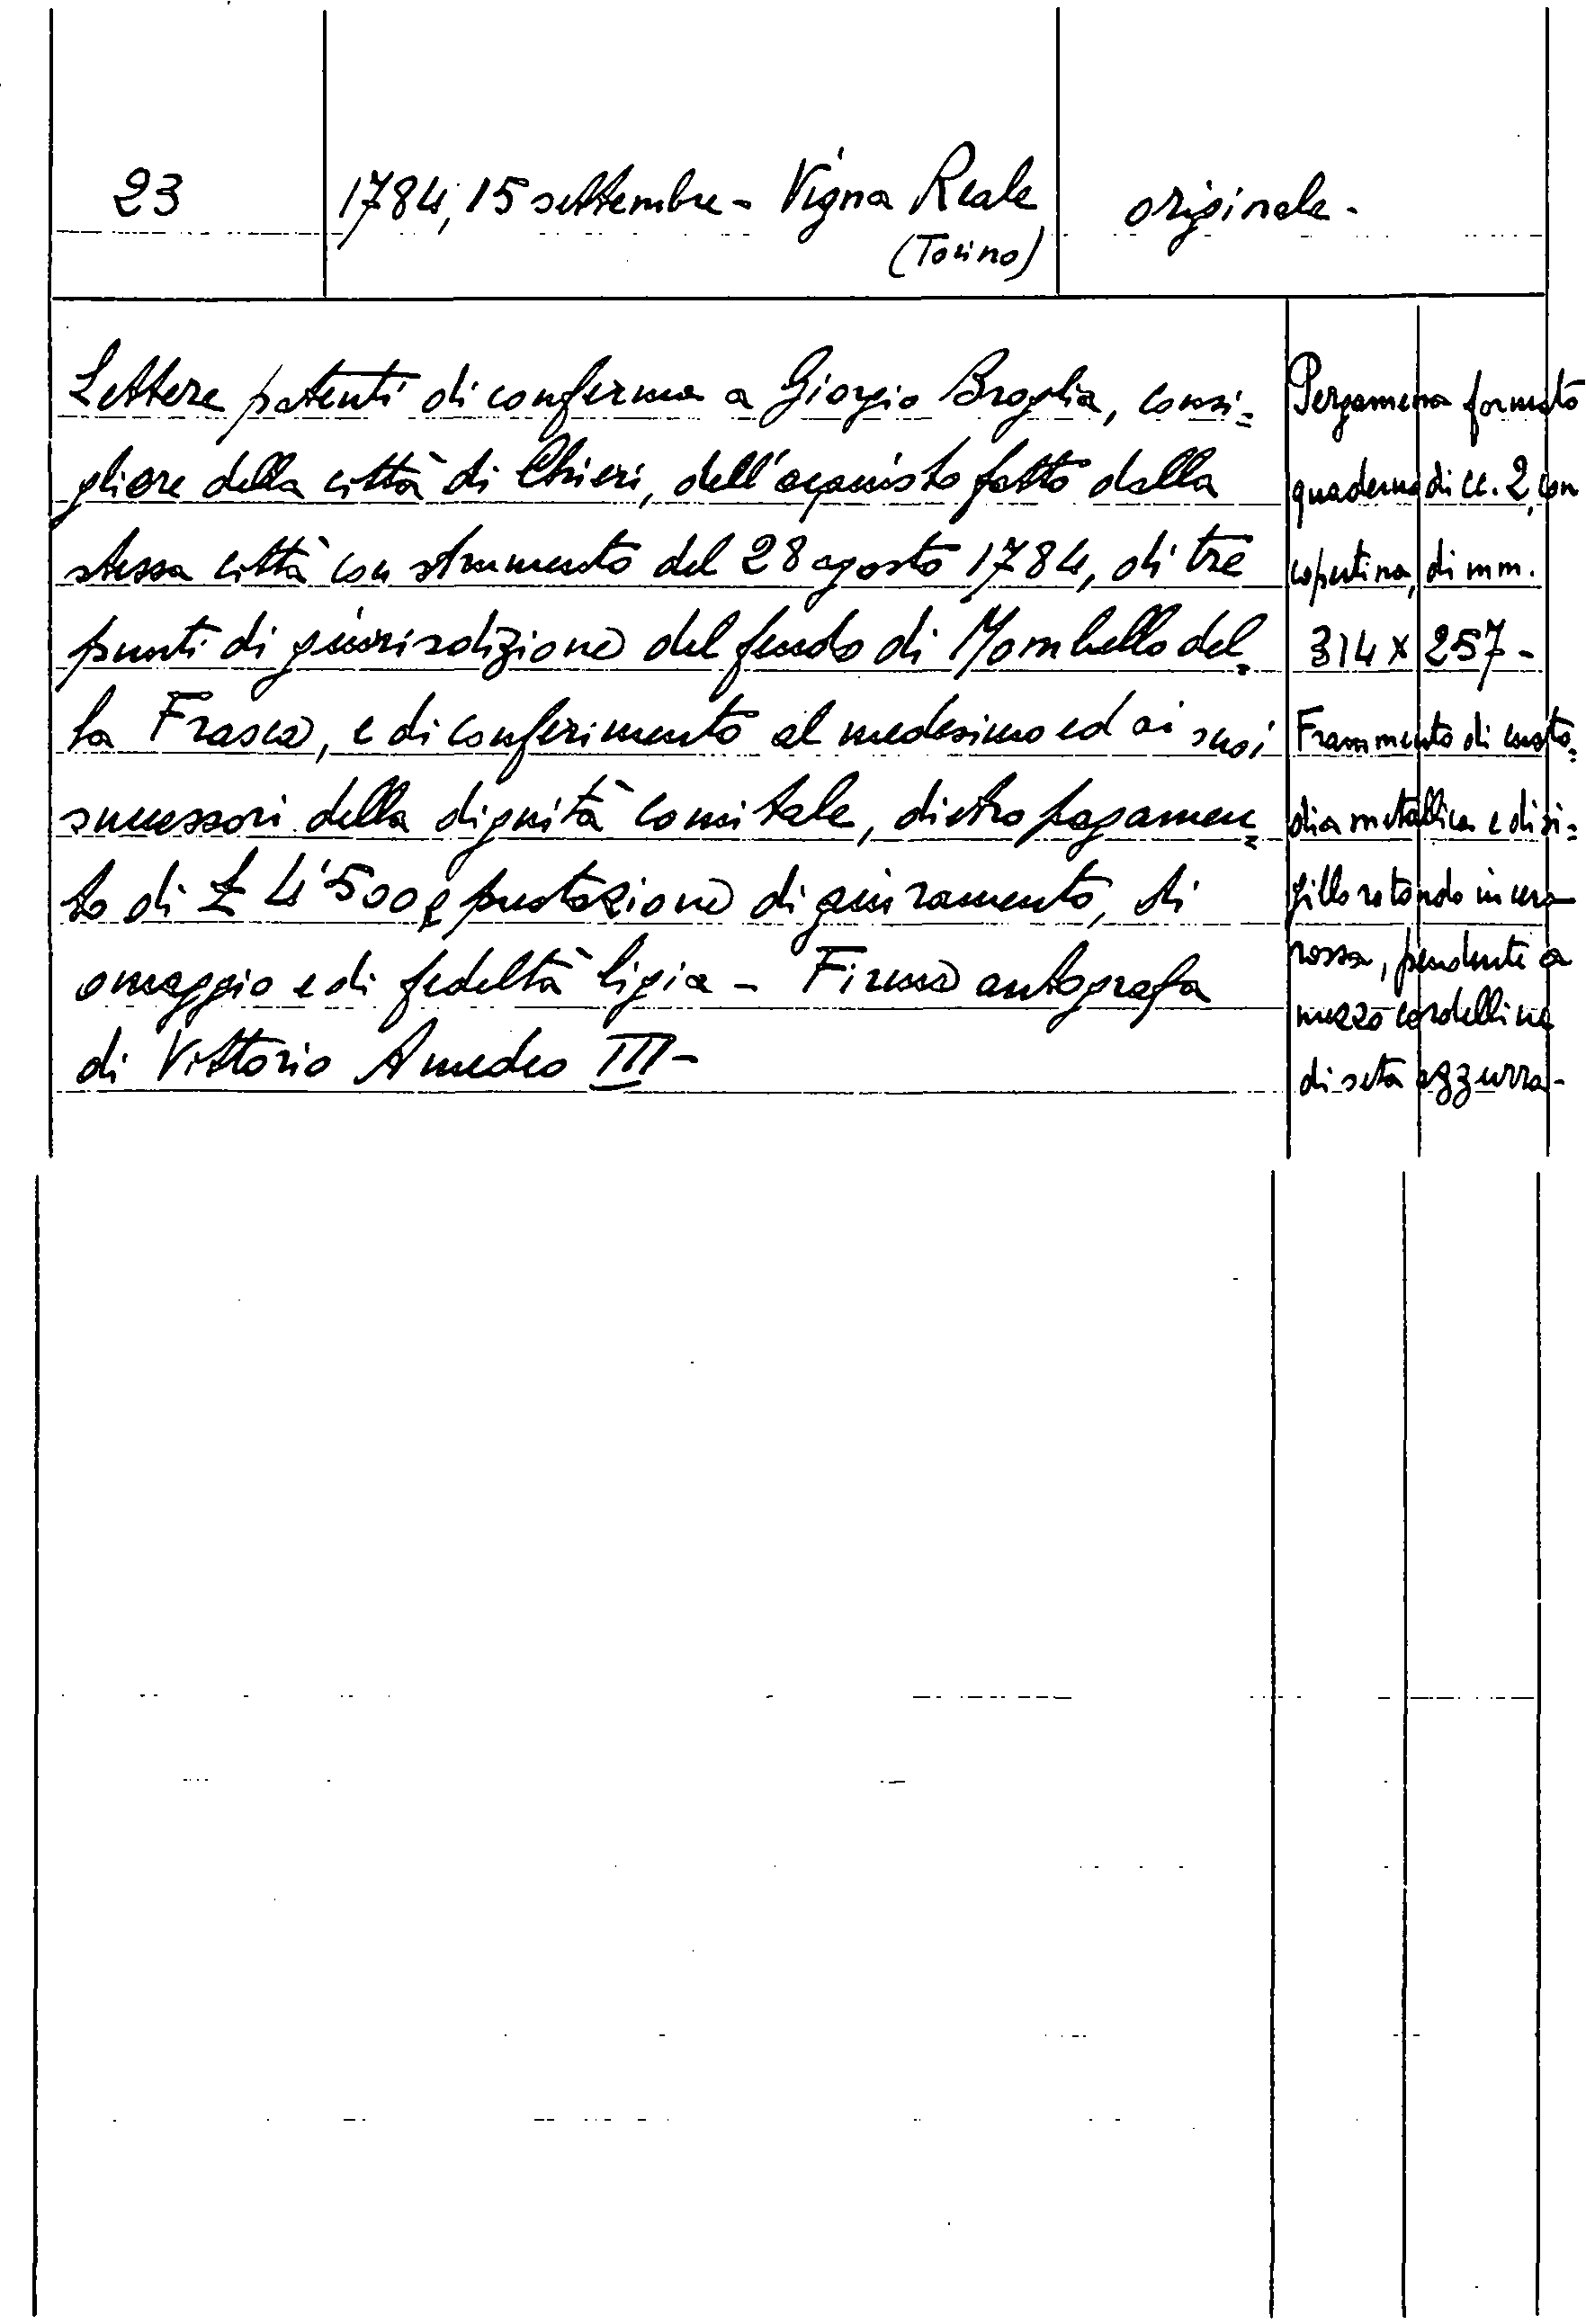 23
1784, 15 settembre - Vigna Reale
(Torino)
originale -
Lettere patenti di conferma a Giorgio Broglia, consi=
gliere della città di Chieri, dell'acquisto fatto dalla
stessa città con strumento del 28 agosto 1784, di tre
punti di giurisdizione del feudo di Mombello del=
la Frasca, e di conferimento al medesimo ed ai suoi
successori della dignità comitale, dietro pagamen=
to di £ 4'500 e prestazione di giuramento, di
omaggio e di fedeltà ligia - Firma autografa
di Vittorio Amedeo III -
Pergamena formato
quaderno di cc. 2, con
copertina, di mm.
314 x 257 -
Frammento di custo=
dia metallica e di si=
gillo rotondo in cera
rossa, pendente a
mezzo cordelline
di seta azzurra -